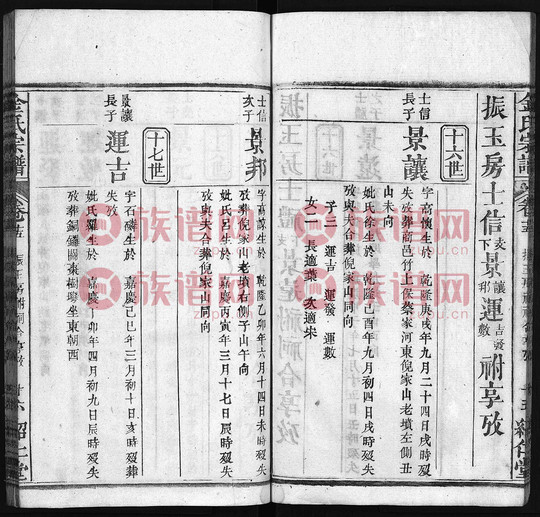 金氏宗譜
卷卄五
振玉房祔祠合享攷
十五
紹仁堂
振玉房士信支下景讓邦運吉發數祔享攷
十六世
士信長子
景讓
字高懷生於 乾隆庚戌年九月二十四日戌時歿
失攷葬商邑竹上保蔡家河東倪家山老墳左側丑
山未向
妣氏徐生於 乾隆己酉年九月初四日戌時歿失
攷與夫合葬倪家山同向
子三 運吉 運發 運數
女二 長適葉 次適宋
士信次子
景邦
字 生於 乾隆乙卯年六月十四日未時歿失
攷葬倪家山老墳右側子山午向
妣氏呂生於 嘉慶丙寅年三月十七日辰時歿失
攷與夫合葬倪家山同向
十七世
景讓長子
運吉
字石磷生於 嘉慶己巳年三月初十日亥時歿葬
失攷
妣氏羅生於 嘉慶丁卯年四月初九日辰時歿失
攷葬銅鑼關棗樹塆坐東朝西
金氏宗譜
卷卄五
振玉房祔祠合享攷
十六
紹仁堂
族譜网